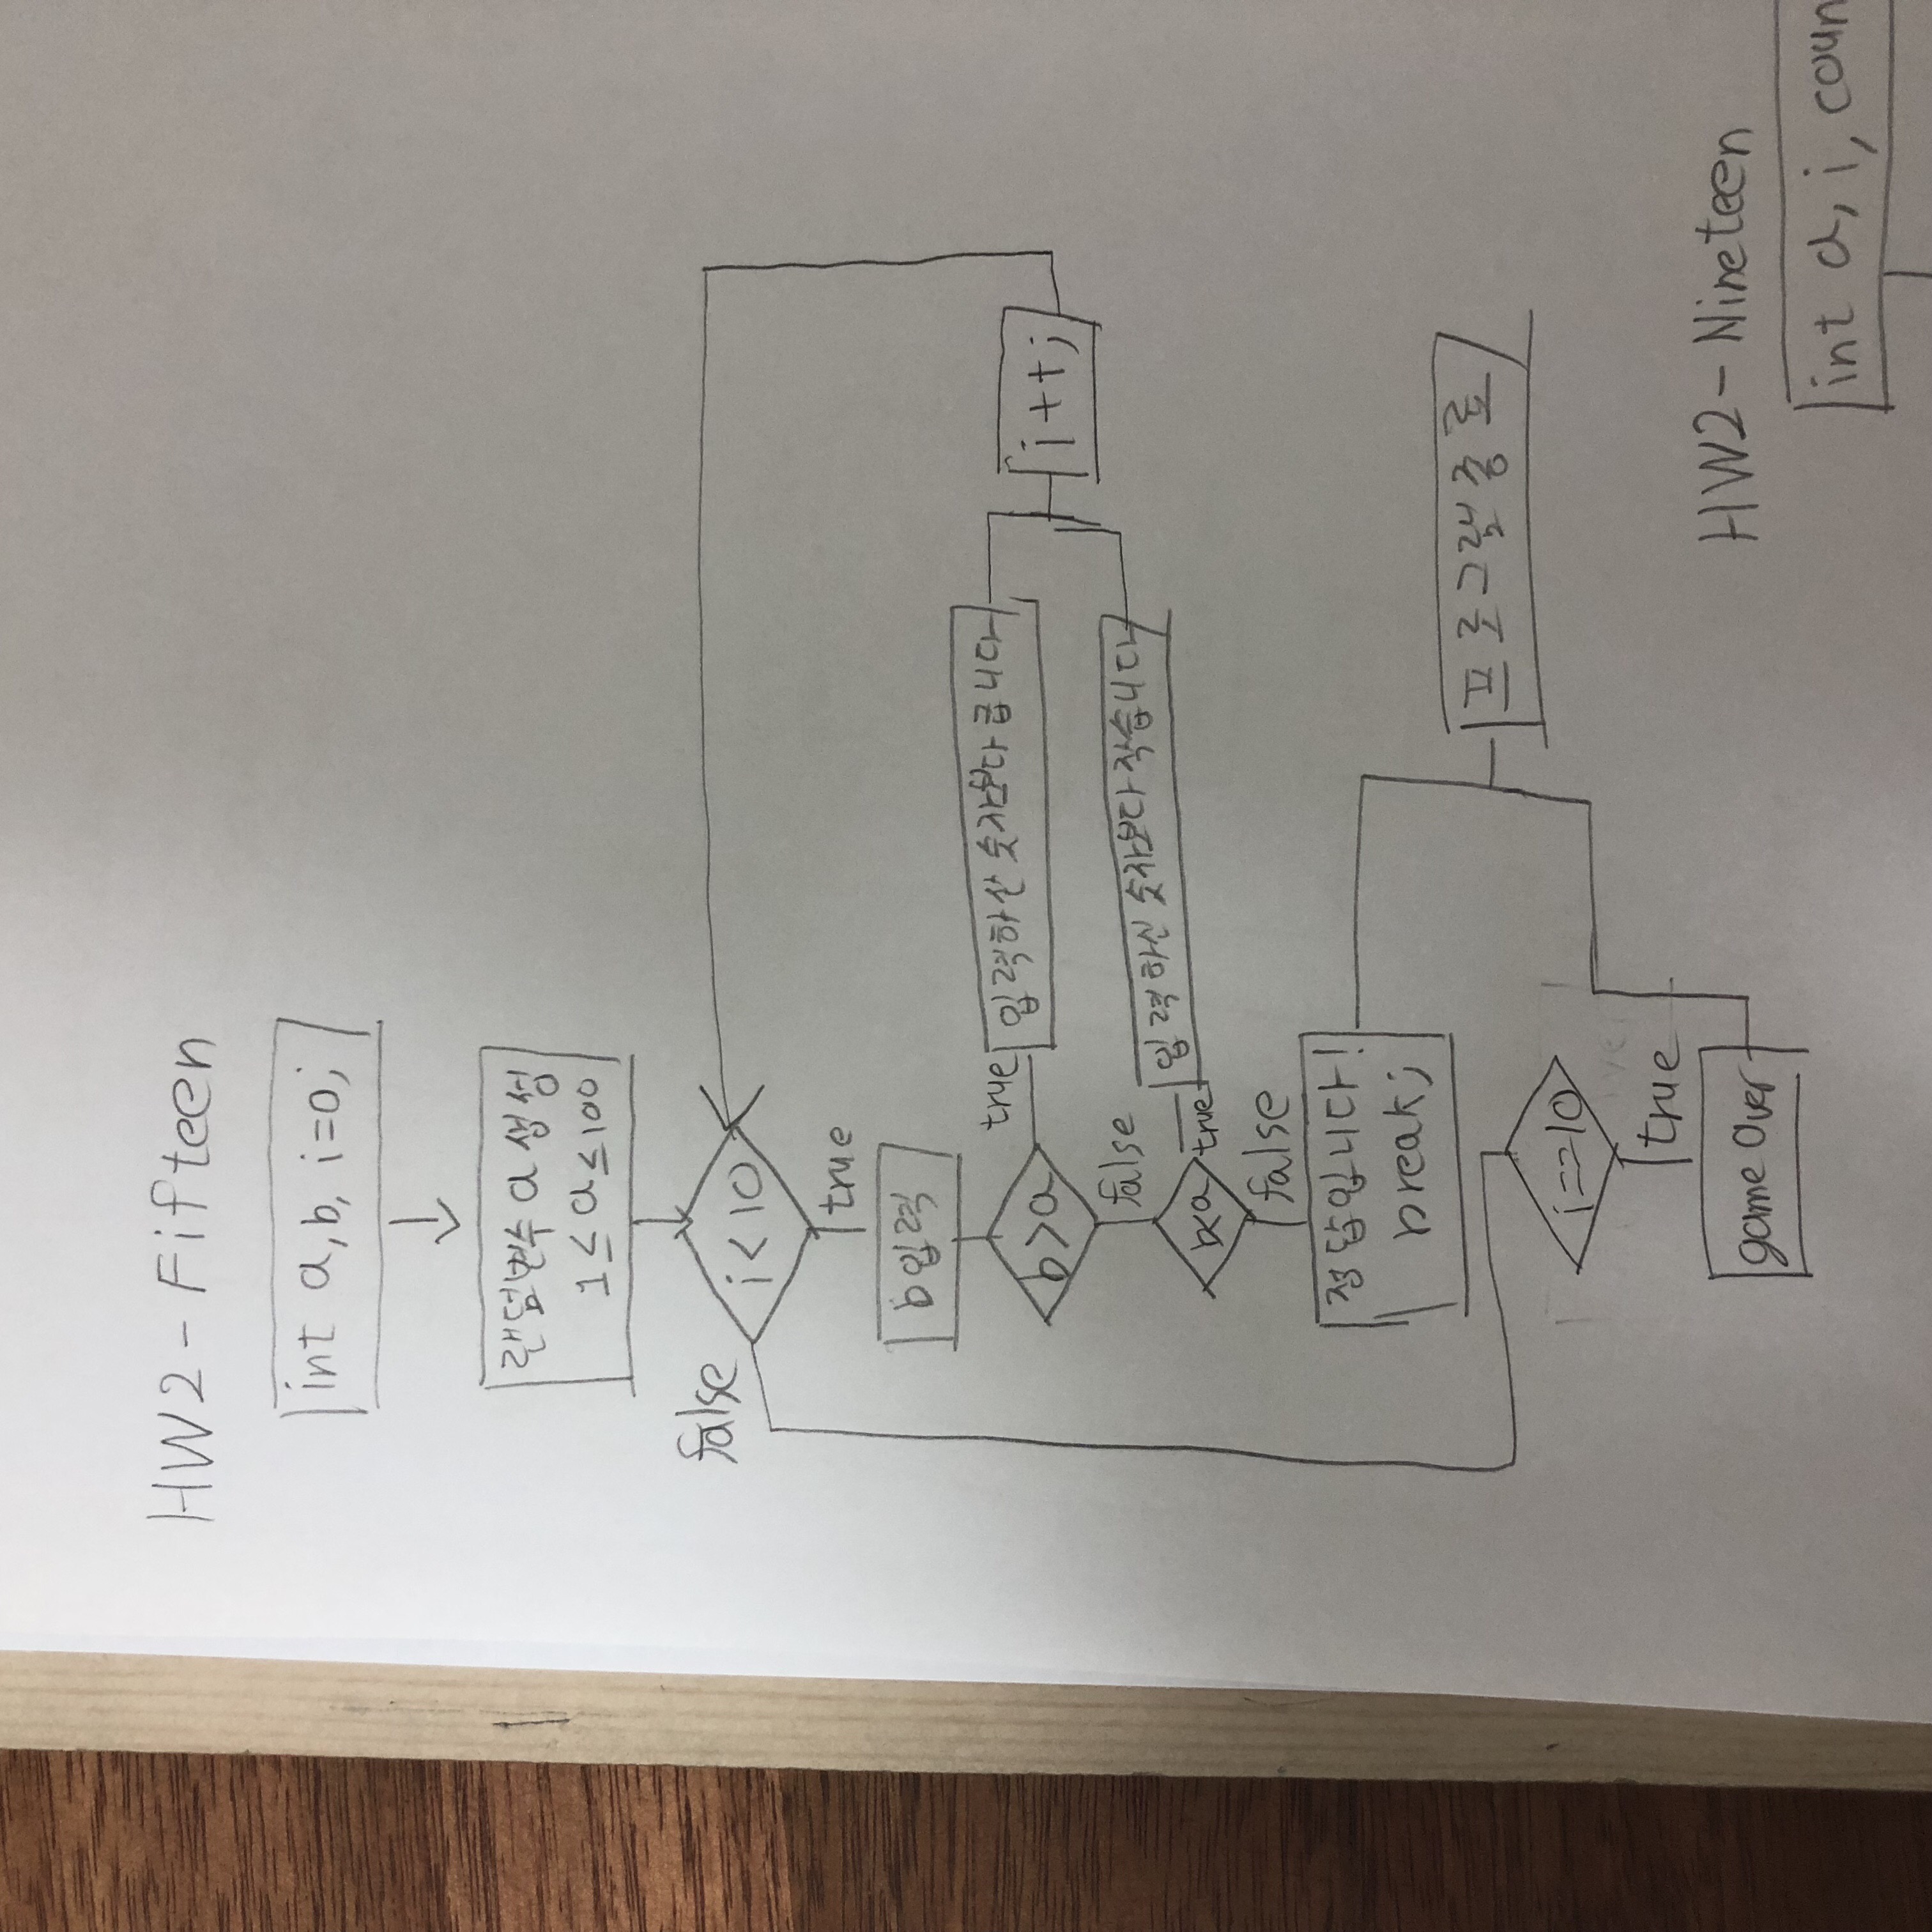 HW2 - Fifteen
int a, b, i=0;
랜덤변수 a 생성
1 ≤ a ≤ 100
false
i < 10
true
b입력
b > a
true
입력하신 숫자보다 큽니다
i++;
false
b<a
true
입력하신 숫자보다 작습니다
false
정답입니다!
break;
프로그램종료
i==10
true
game Over
HW2 - Nineteen
int a, i, coun